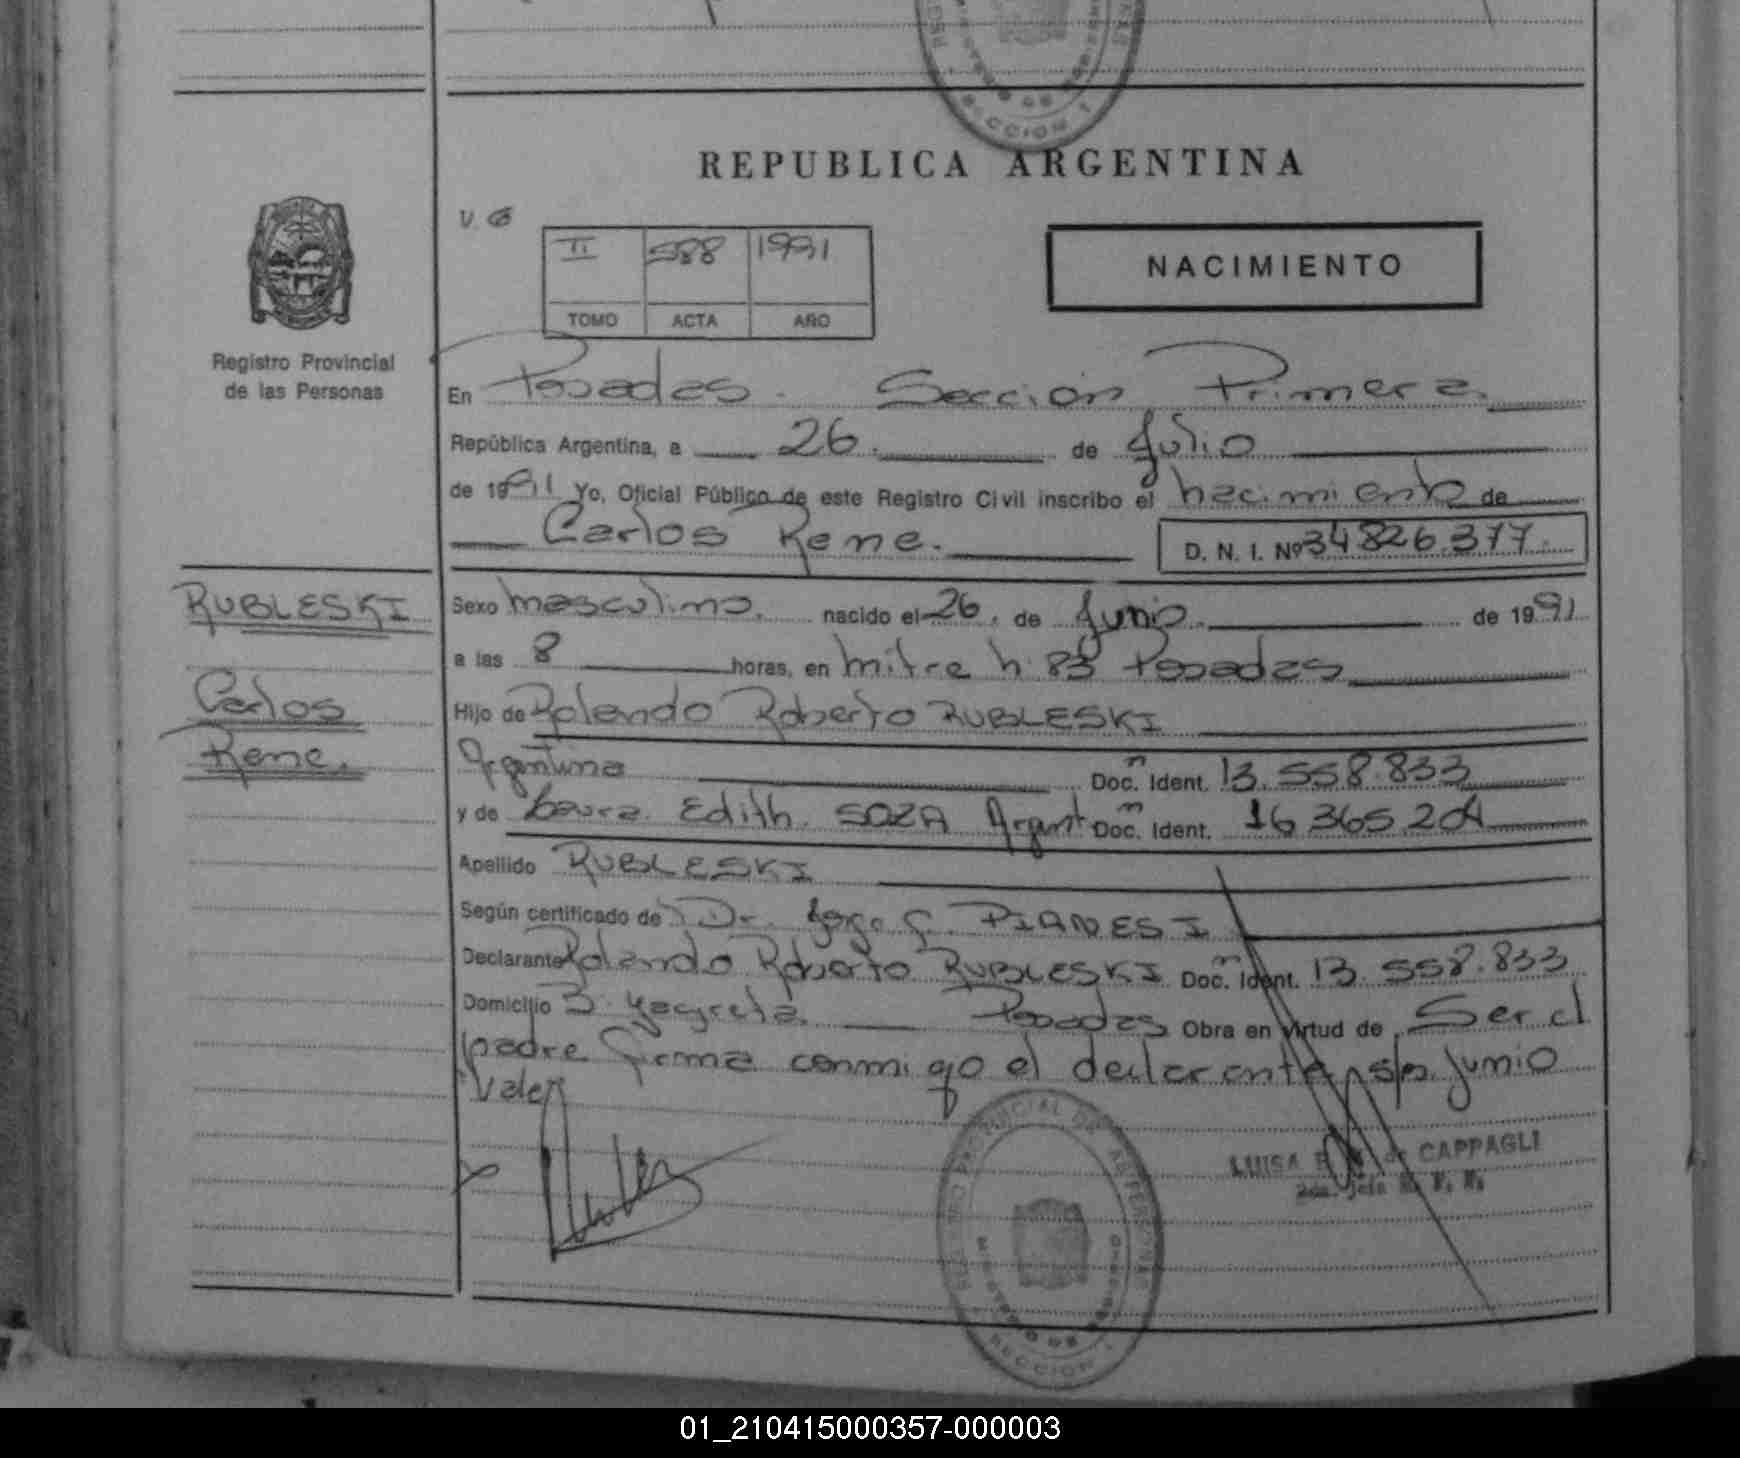 REPUBLICA ARGENTINA
V. G
II 588 1991
TOMO ACTA AÑO
NACIMIENTO
Registro Provincial
de las Personas
En Posadas. Sección Primera.
República Argentina, a 26. de Julio
de 1991 Yo, Oficial Público de este Registro Civil inscribo el nacimiento de
Carlos Rene. D. N. I. Nº 34.826.377.
RUBLESKI
Carlos
Rene.
Sexo masculino. nacido el 26. de Junio. de 1991
a las 8 horas, en mitre n. 83 Posadas
Hijo de Rolando Roberto RUBLESKI
Argentina Doc. Ident. 13.558.833
y de Laura Edith. SOZA Argent Doc. Ident. 16.365.204
Apellido RUBLESKI
Según certificado de Dr. Jorge PIANESI
Declarante Rolando Roberto RUBLESKI Doc. Ident. 13.558.833
Domicilio B. Yacyreta Posadas Obra en virtud de Ser el
padre firma conmigo el declarante s/p. junio
Vale
REGISTRO PROVINCIAL DE LAS PERSONAS
SECCION 1
LUISA de CAPPAGLI
2da. Jefe R. P. P.
01_210415000357-000003